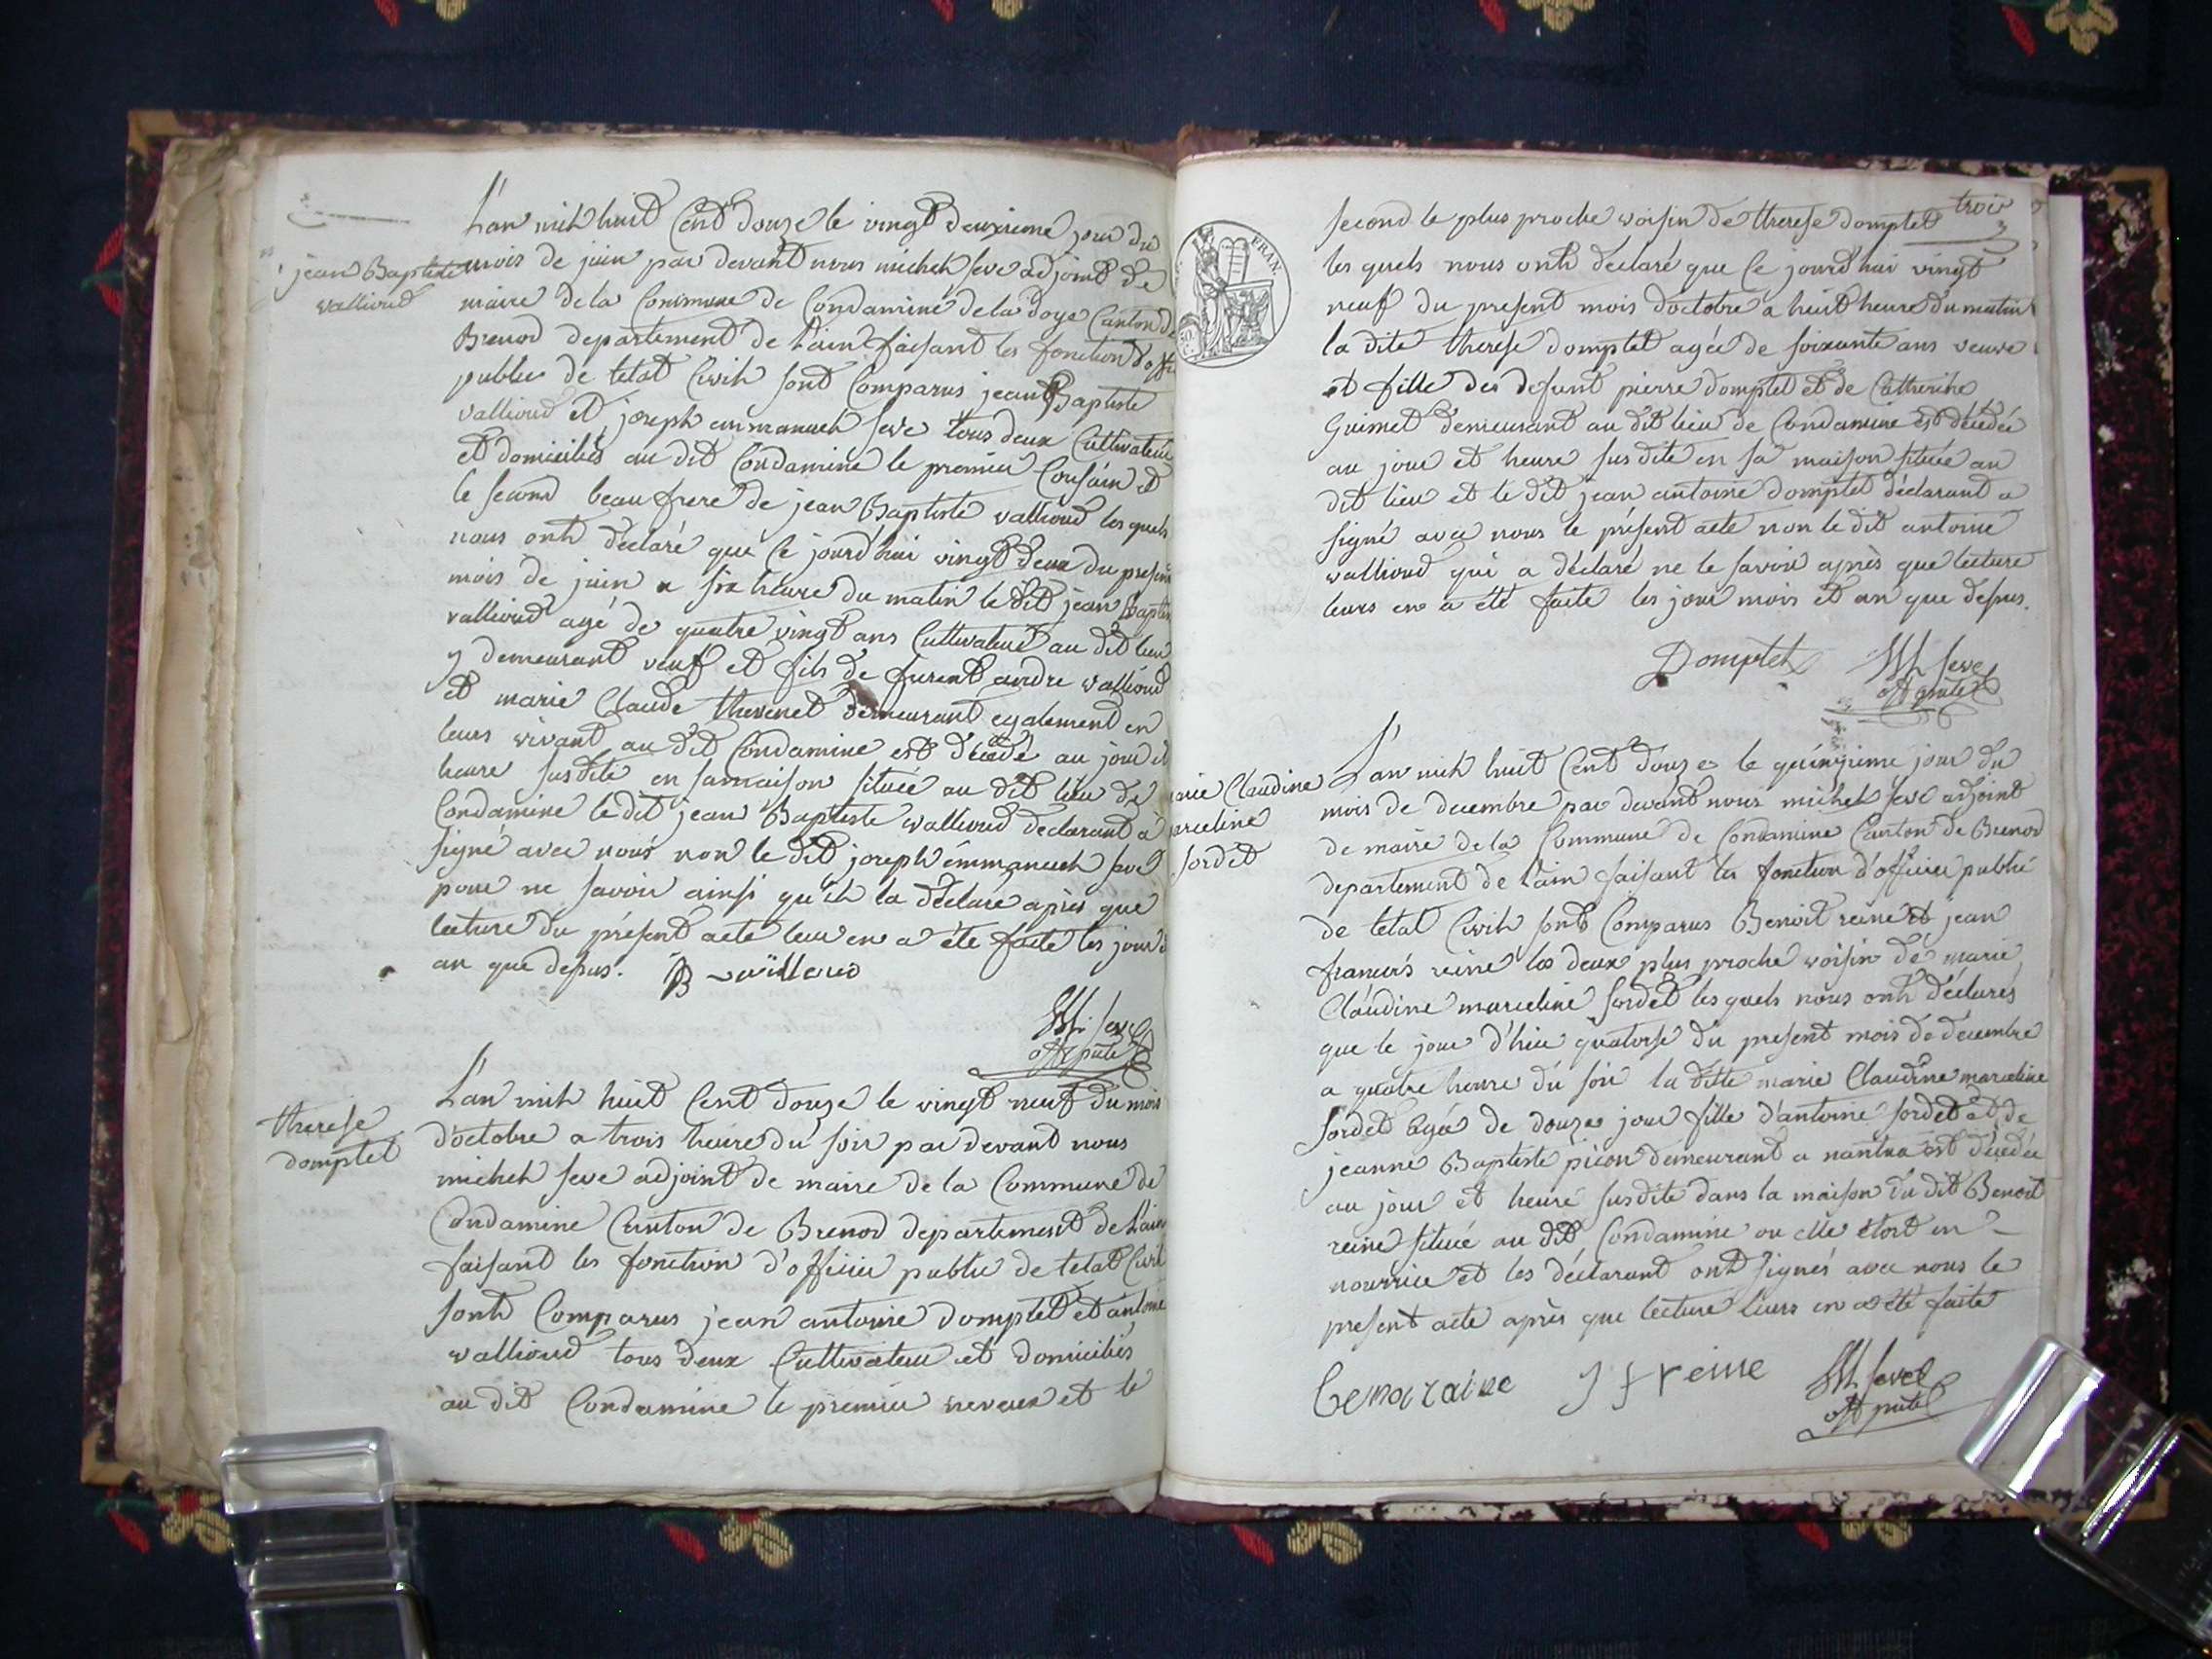 L'an mil huit Cent douze le vingt deuxieme jour du
jean Baptiste
vallioud
mois de juin par devant nous michel seve adjoint de
maire de la Commune de Condamine de la doye Canton de
Brenod departement de l'ain faisant les fonction d'offi
public de l'etat Civil sont Comparus jean Baptiste
vallioud et joseph emmanuel seve tous deux Cultivateur
et domiciliés au dit Condamine le premier Cousain et
le second beau frere de jean Baptiste vallioud les quels
nous ont déclaré que Ce jourd'hui vingt deux du present
mois de juin a six heure du matin le dit jean Baptiste
vallioud agé de quatre vingt ans Cultivateur au dit lieu
y demeurant veuf et fils de furent andre vallioud
et marie Claude thevenet demeurant egalement en
leurs vivant au dit Condamine est décédé au jour et
heure susdite en sa maison située au dit lieu de
Condamine le dit jean Baptiste vallioud declarant a
signé avec nous non le dit joseph emmanuel seve
pour ne savoir ainsi qu'il la déclaré après que
lecture du présent acte leur en a été faite les jour et
an que desus. JB vuillerio
M. seve
off pute
therese
domptet
L'an mil huit Cent douze le vingt neuf du mois
d'octobre a trois heure du soir par devant nous
michel seve adjoint de maire de la Commune de
Condamine Canton de Brenod departement de l'ain
faisant les fonction d'officier public de l'etat Civil
sont Comparus jean antoine domptet et antoine
vallioud tous deux Cultivateur et domiciliés
au dit Condamine le premier neveux et le
trois
3
FRAN.
second le plus proche voisin de therese domptet
les quels nous ont declaré que Ce jourd'hui vingt
neuf du present mois d'octobre a huit heure du matin
la dite therese domptet agée de soixante ans veuve
et fille des defunt pierre domptet et de Catherine
Guimet demeurant au dit lieu de Condamine est décédée
au jour et heure sus dite en sa maison située au
dit lieu et le dit jean antoine domptet déclarant a
signé avec nous le présent acte non le dit antoine
vallioud qui a déclaré ne le savoir après que lecture
leurs en a été faite les jour mois et an que desus.
Domptet M seve
off pute
arie Claudine
arceline
sordet
L'an mil huit Cent douze le quinzieme jour du
mois de decembre par devant nous michel seve adjoint
de maire de la Commune de Condamine Canton de Brenod
departement de l'ain faisant les fonction d'officier public
de l'etat Civil sont Comparus Benoit reine et jean
francois reine les deux plus proche voisin de marie
Claudine marceline sordet les quels nous ont déclarés
que le jour d'hier quatorse du present mois de decembre
a quatre heure du soir la ditte marie Claudine marceline
sordet agée de douze jour fille d'antoine sordet et de
jeanne Baptiste picon demeurant a nantua est décédée
au jour et heure susdite dans la maison du dit Benoit
reine située au dit Condamine ou elle étoit en
nourrice et les déclarant ont signés avec nous le
present acte après que lecture leurs en a été faite
Benoi raine J f reine M seve
off pute